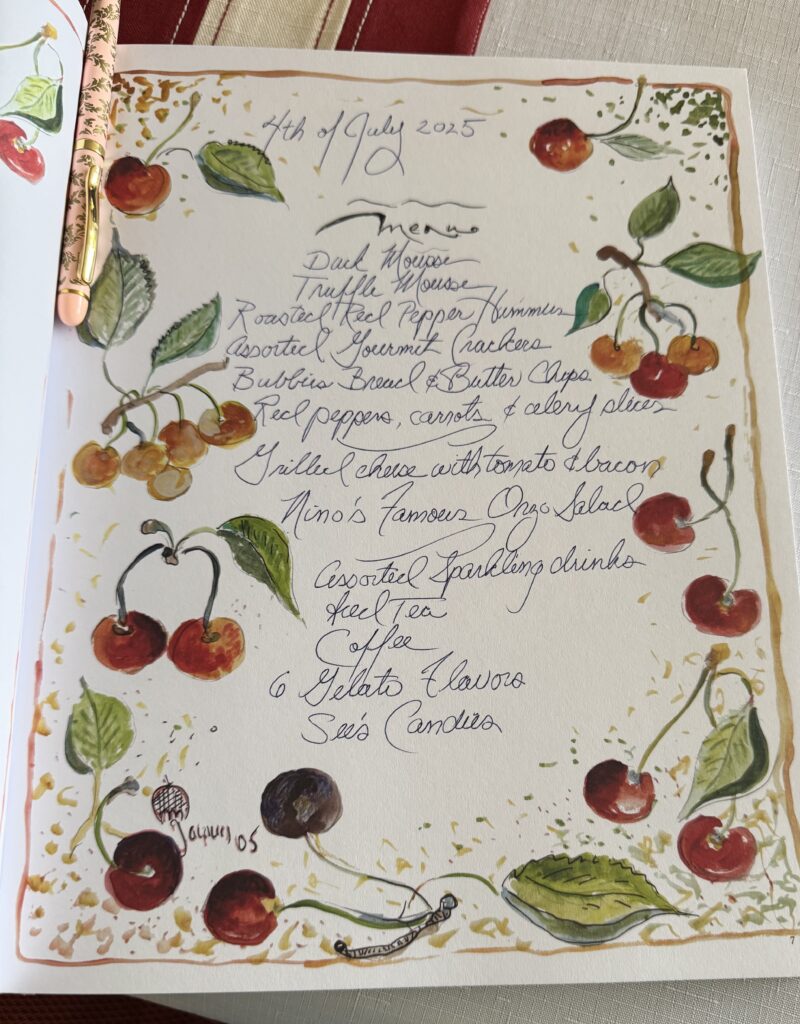 4th of July 2025
menu
Duck Mousse
Truffle Mousse
Roasted Red Pepper Hummus
Assorted Gourmet Crackers
Bubbies Bread & Butter Chips
Red peppers, carrots & celery slices
Grilled cheese with tomato & bacon
Nino's Famous Orzo Salad
Assorted Sparkling drinks
Iced Tea
Coffee
6 Gelato Flavors
See's Candies
Jacques 05
7